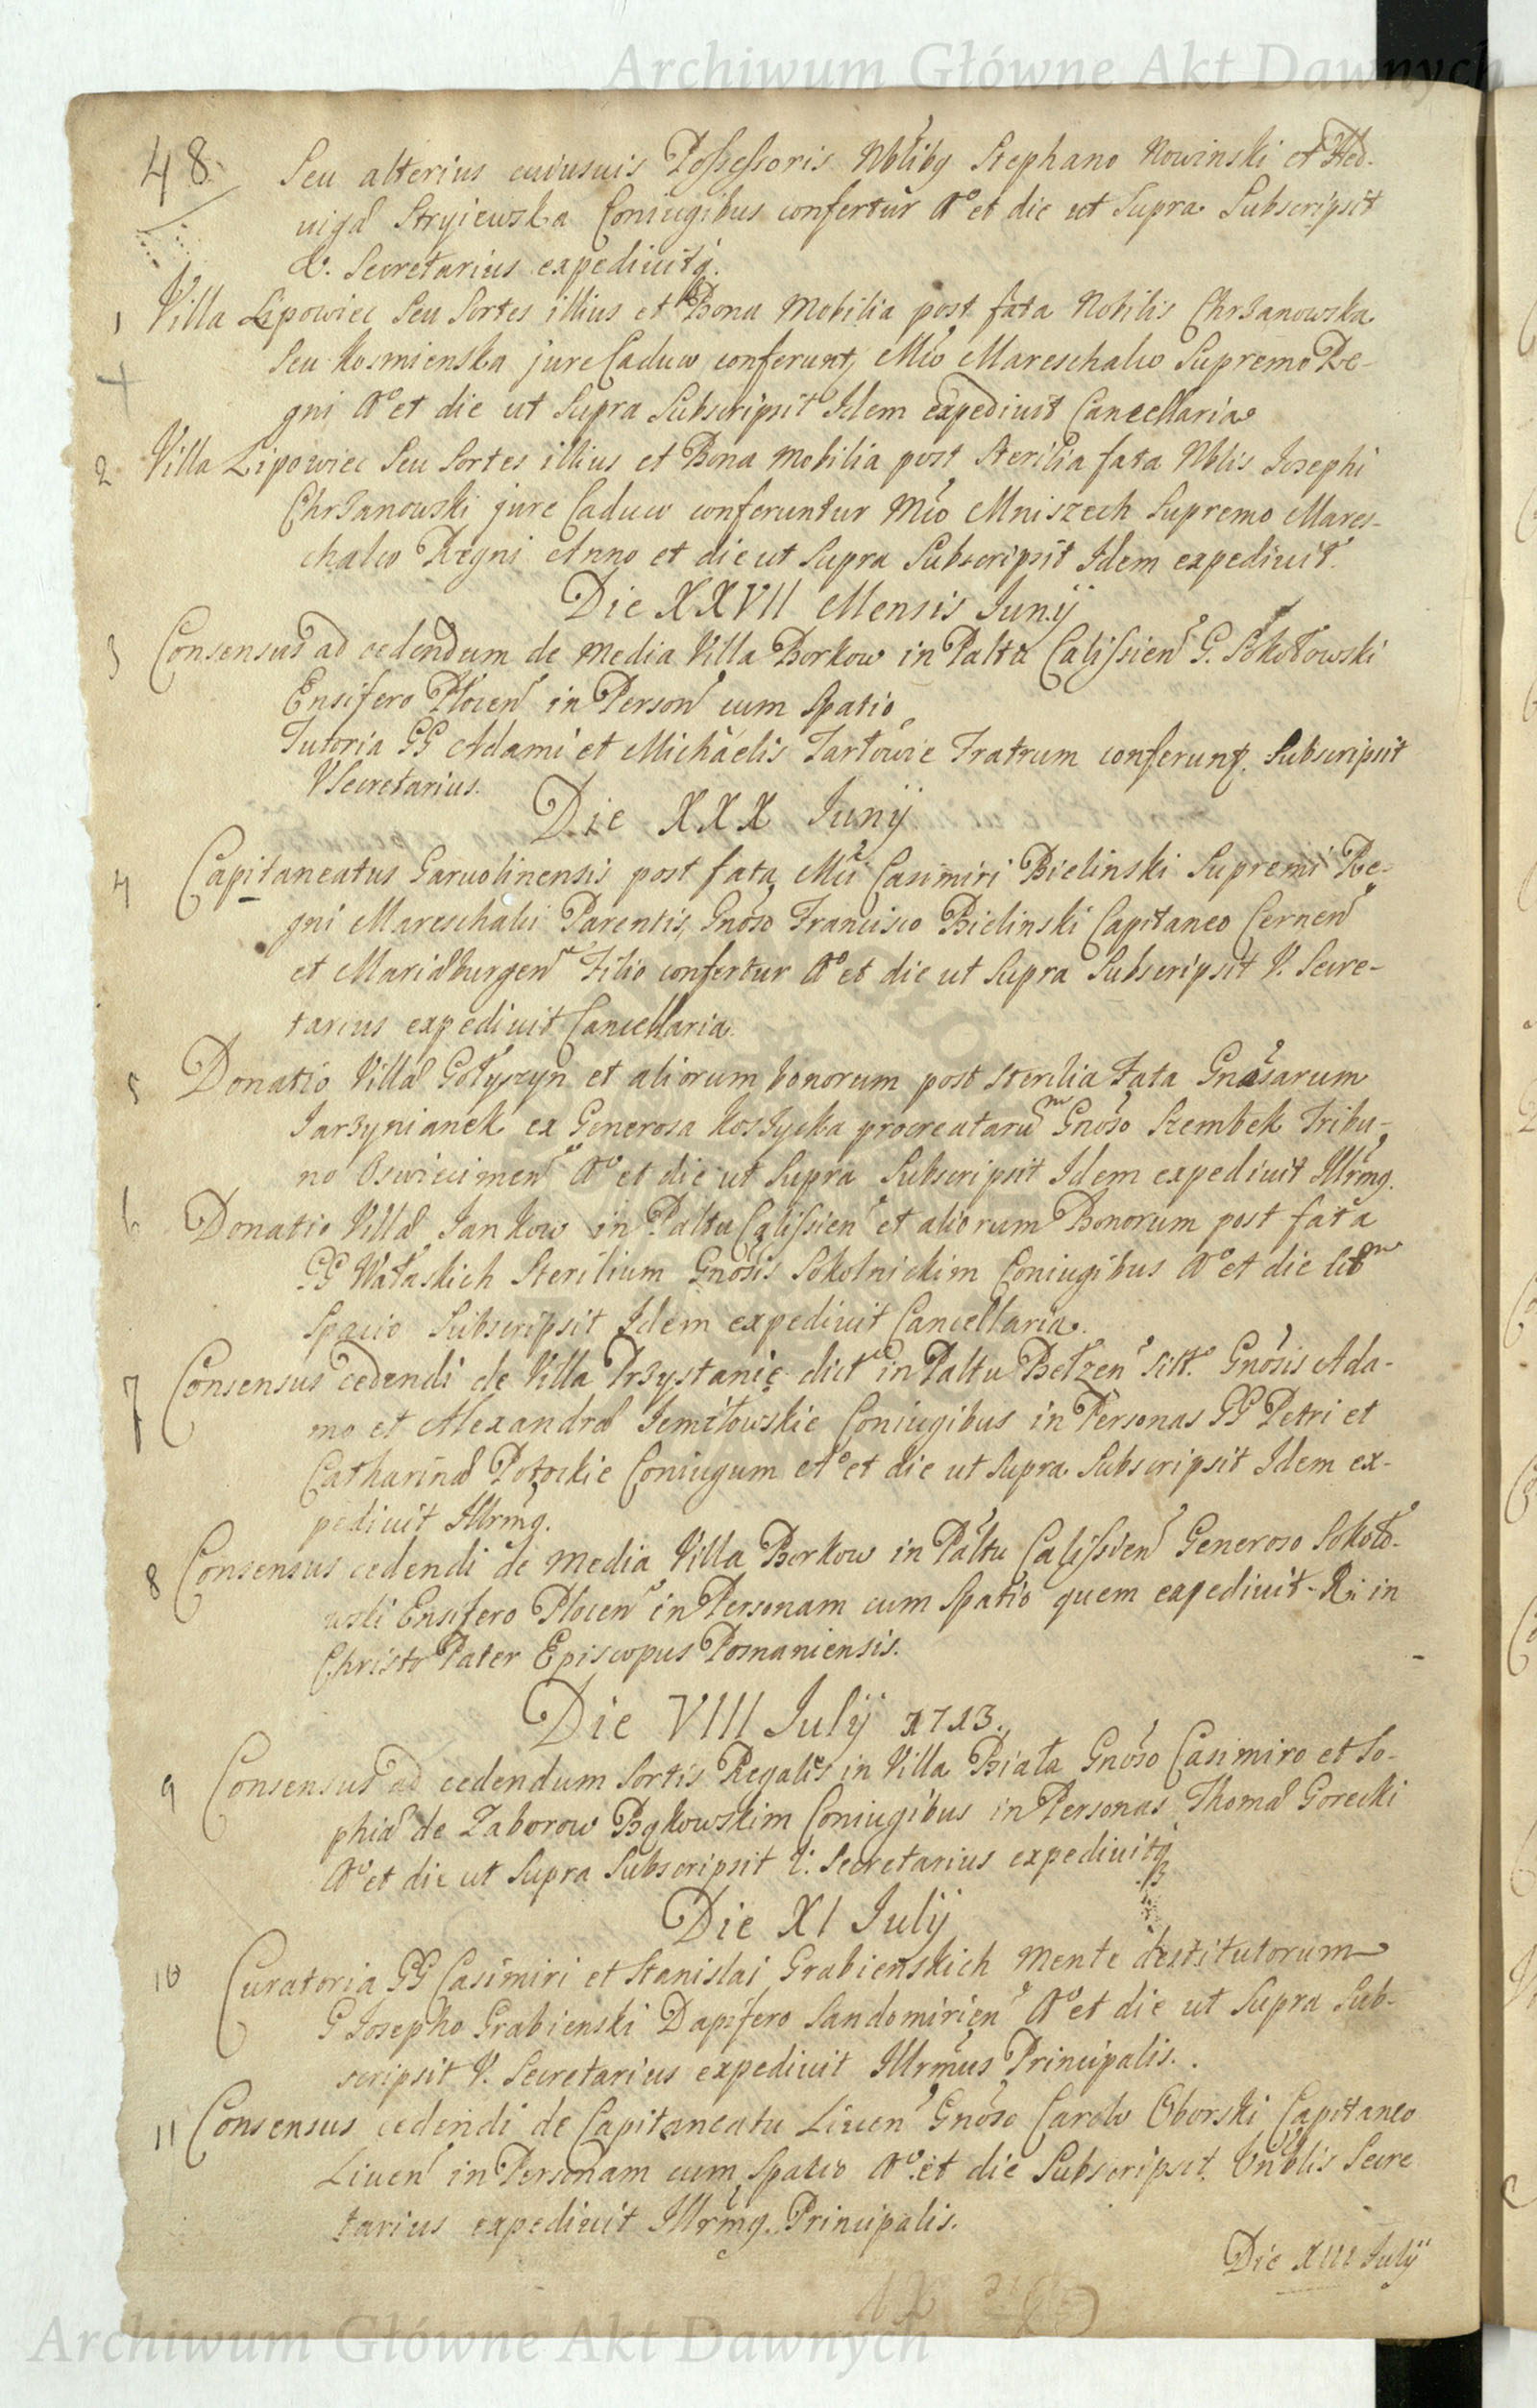 Archiwum Główne Akt Dawnych
48.
Seu alterius cuiusuis Possessoris Nbłibg Stephano Nowinski et Hed-
uigæ Stryiewska Coniugibus confertur Aº et die ut Supra Subscripsit
V. Secretarius expediuitq.
1 Villa Lipowiec Seu Sortes illius et Bona Mobilia post fata Nobilis Chrzanowska
Seu Kosmienska jure Caduco conferunt, Mco Mareschalco Supremo Re-
gni Aº et die ut Supra Subscripsit Idem expediuit Cancellaria
2 Villa Lipowiec Seu Sortes illius et Bona Mobilia post Sterilia fata Nblis Josephi
Chrzanowski jure Caduco conferuntur Mco Mniszech Supremo Mares-
chalco Regni Anno et die ut Supra Subscripsit Idem expediuit.
Die XXVII Mensis Junij
3 Consensus ad cedendum de Media Villa Borkow in Paltu Calissien G. Sokołowski
Ensifero Płocen in Person cum Spatio
Tutoria GG Adami et Michaelis Tarłowie Fratrum conferunt. Subscripsit
V Secretarius.
Die XXX Junij
4 Capitaneatus Garuolinensis post fata Mci Casimiri Bielinski Supremi Re-
gni Mareschalci Parentis, Gnoso Francisco Bielinski Capitaneo Cernen
et Mariæburgen Filio confertur Aº et die ut Supra Subscripsit V. Secre-
tarius expediuit Cancellaria.
5 Donatio Villæ Gołyszyn et aliorum bonorum post sterilia Fata Gnosarum
Jarzynianek ex Generosa Koszycka procreataru Gnoso Szembek Tribu-
no Oswiecimen Aº et die ut Supra Subscripsit Idem expediuit Illrmg.
6 Donatio Villæ Jankow in Paltu Calissien et aliorum Bonorum post fata
GG Wałaskich Sterilium Gnosis Sokolnickim Coniugibus Aº et die
Spacio Subscripsit Idem expediuit Cancellaria.
7 Consensus cedendi de Villa Przystanie dict in Paltu Bełzen Sitt. Gnosis Ada-
mo et Alexandræ Jemiłowskie Coniugibus in Personas GG Petri et
Catharinæ Potockie Coniugum Aº et die ut Supra Subscripsit Idem ex-
pediuit Illrmg.
8 Consensus cedendi de Media Villa Borkow in Paltu Calissien Generoso Sokoło-
wski Ensifero Płocen in Personam cum Spatio quem expediuit R. in
Christo Pater Episcopus Posnaniensis.
Die VIII July 1713.
9 Consensus ad cedendum Sortis Regalis in Villa Biała Gnoso Casimiro et So-
phiæ de Zaborow Bykowskim Coniugibus in Personas Thomæ Gorecki
Aº et die ut Supra Subscripsit V. Secretarius expediuitq
Die XI July
10 Curatoria GG Casimiri et Stanislai Grabienskich Mente destitutorum
G Josepho Grabienski Dapifero Sandomirien Aº et die ut Supra Sub-
scripsit V. Secretarius expediuit Illrmus Principalis.
11 Consensus cedendi de Capitaneatu Liuen Gnoso Carolo Oborski Capitaneo
Liuen in Personam cum Spatio Aº et die Subscripsit Vnblis Secre
tarius expediuit Illrmg. Principalis.
Die XIII July
Archiwum Główne Akt Dawnych